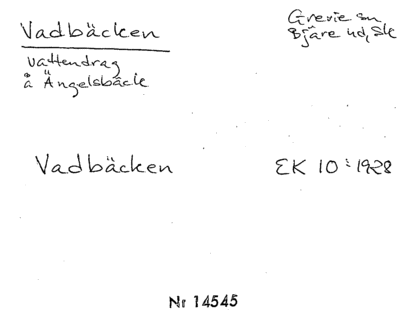 Vadbäcken
Grevie sn
Bjäre hd, Sk
vattendrag
å Ängelsbäck
Vadbäcken
EK 10:1928
Nr 14545